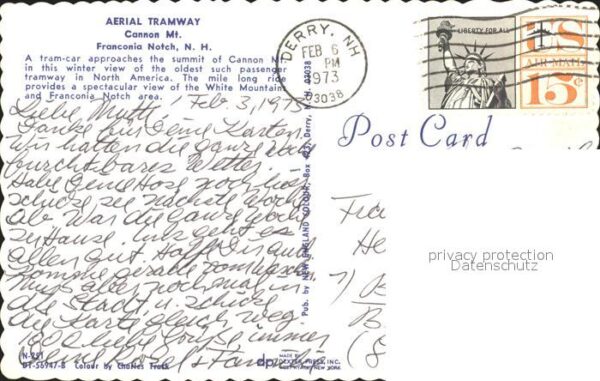 AERIAL TRAMWAY
Cannon Mt.
Franconia Notch, N. H.
A tram-car approaches the summit of Cannon Mt.
in this winter view of the oldest such passenger
tramway in North America. The mile long ride
provides a spectacular view of the White Mountains
and Franconia Notch area.
DERRY, NH
FEB 6
PM
1973
03038
LIBERTY FOR ALL
US
AIR MAIL
15c
Post Card
Feb. 3, 1973
Liebe Mutti!
Danke für Deine Karten
Wir hatten die ganze
furchtbares Wetter.
Habe Hose noch hier
schicke sie nächste Woche
ab. War die ganze Woche
zu Hause. Uns geht es
allen gut. Hoffe Dir auch.
Komme gerade vom
muss aber noch mal in
die Stadt u. schicke
die Karte gleich weg.
Liebe Grüße immer
Pub. by NEW ENGLAND COLOUR, Box Derry, N. H. 03038
N-251
DT-56947-B Colour by Charles Trask
dp
MADE BY
DEXTER PRESS, INC.
WEST NYACK, NEW YORK
privacy protection
Datenschutz